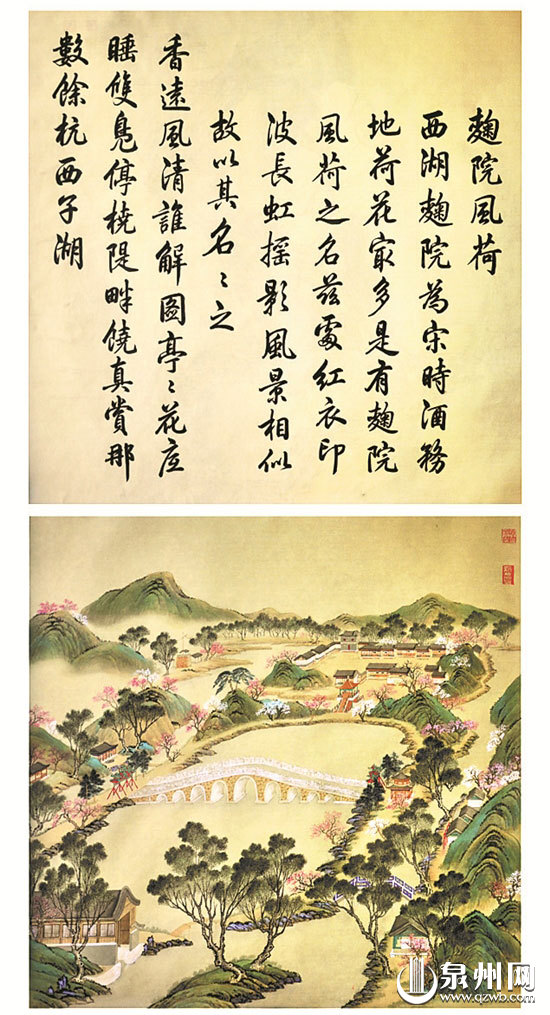 麴院風荷
西湖麴院為宋時酒務
地荷花最多是有麴院
風荷之名茲處紅衣印
波長虹搖影風景相似
故以其名〻之
香遠風清誰解圖亭〻花底
睡雙鳧停橈隄畔饒真賞那
數餘杭西子湖
泉州网
www.qzwb.com